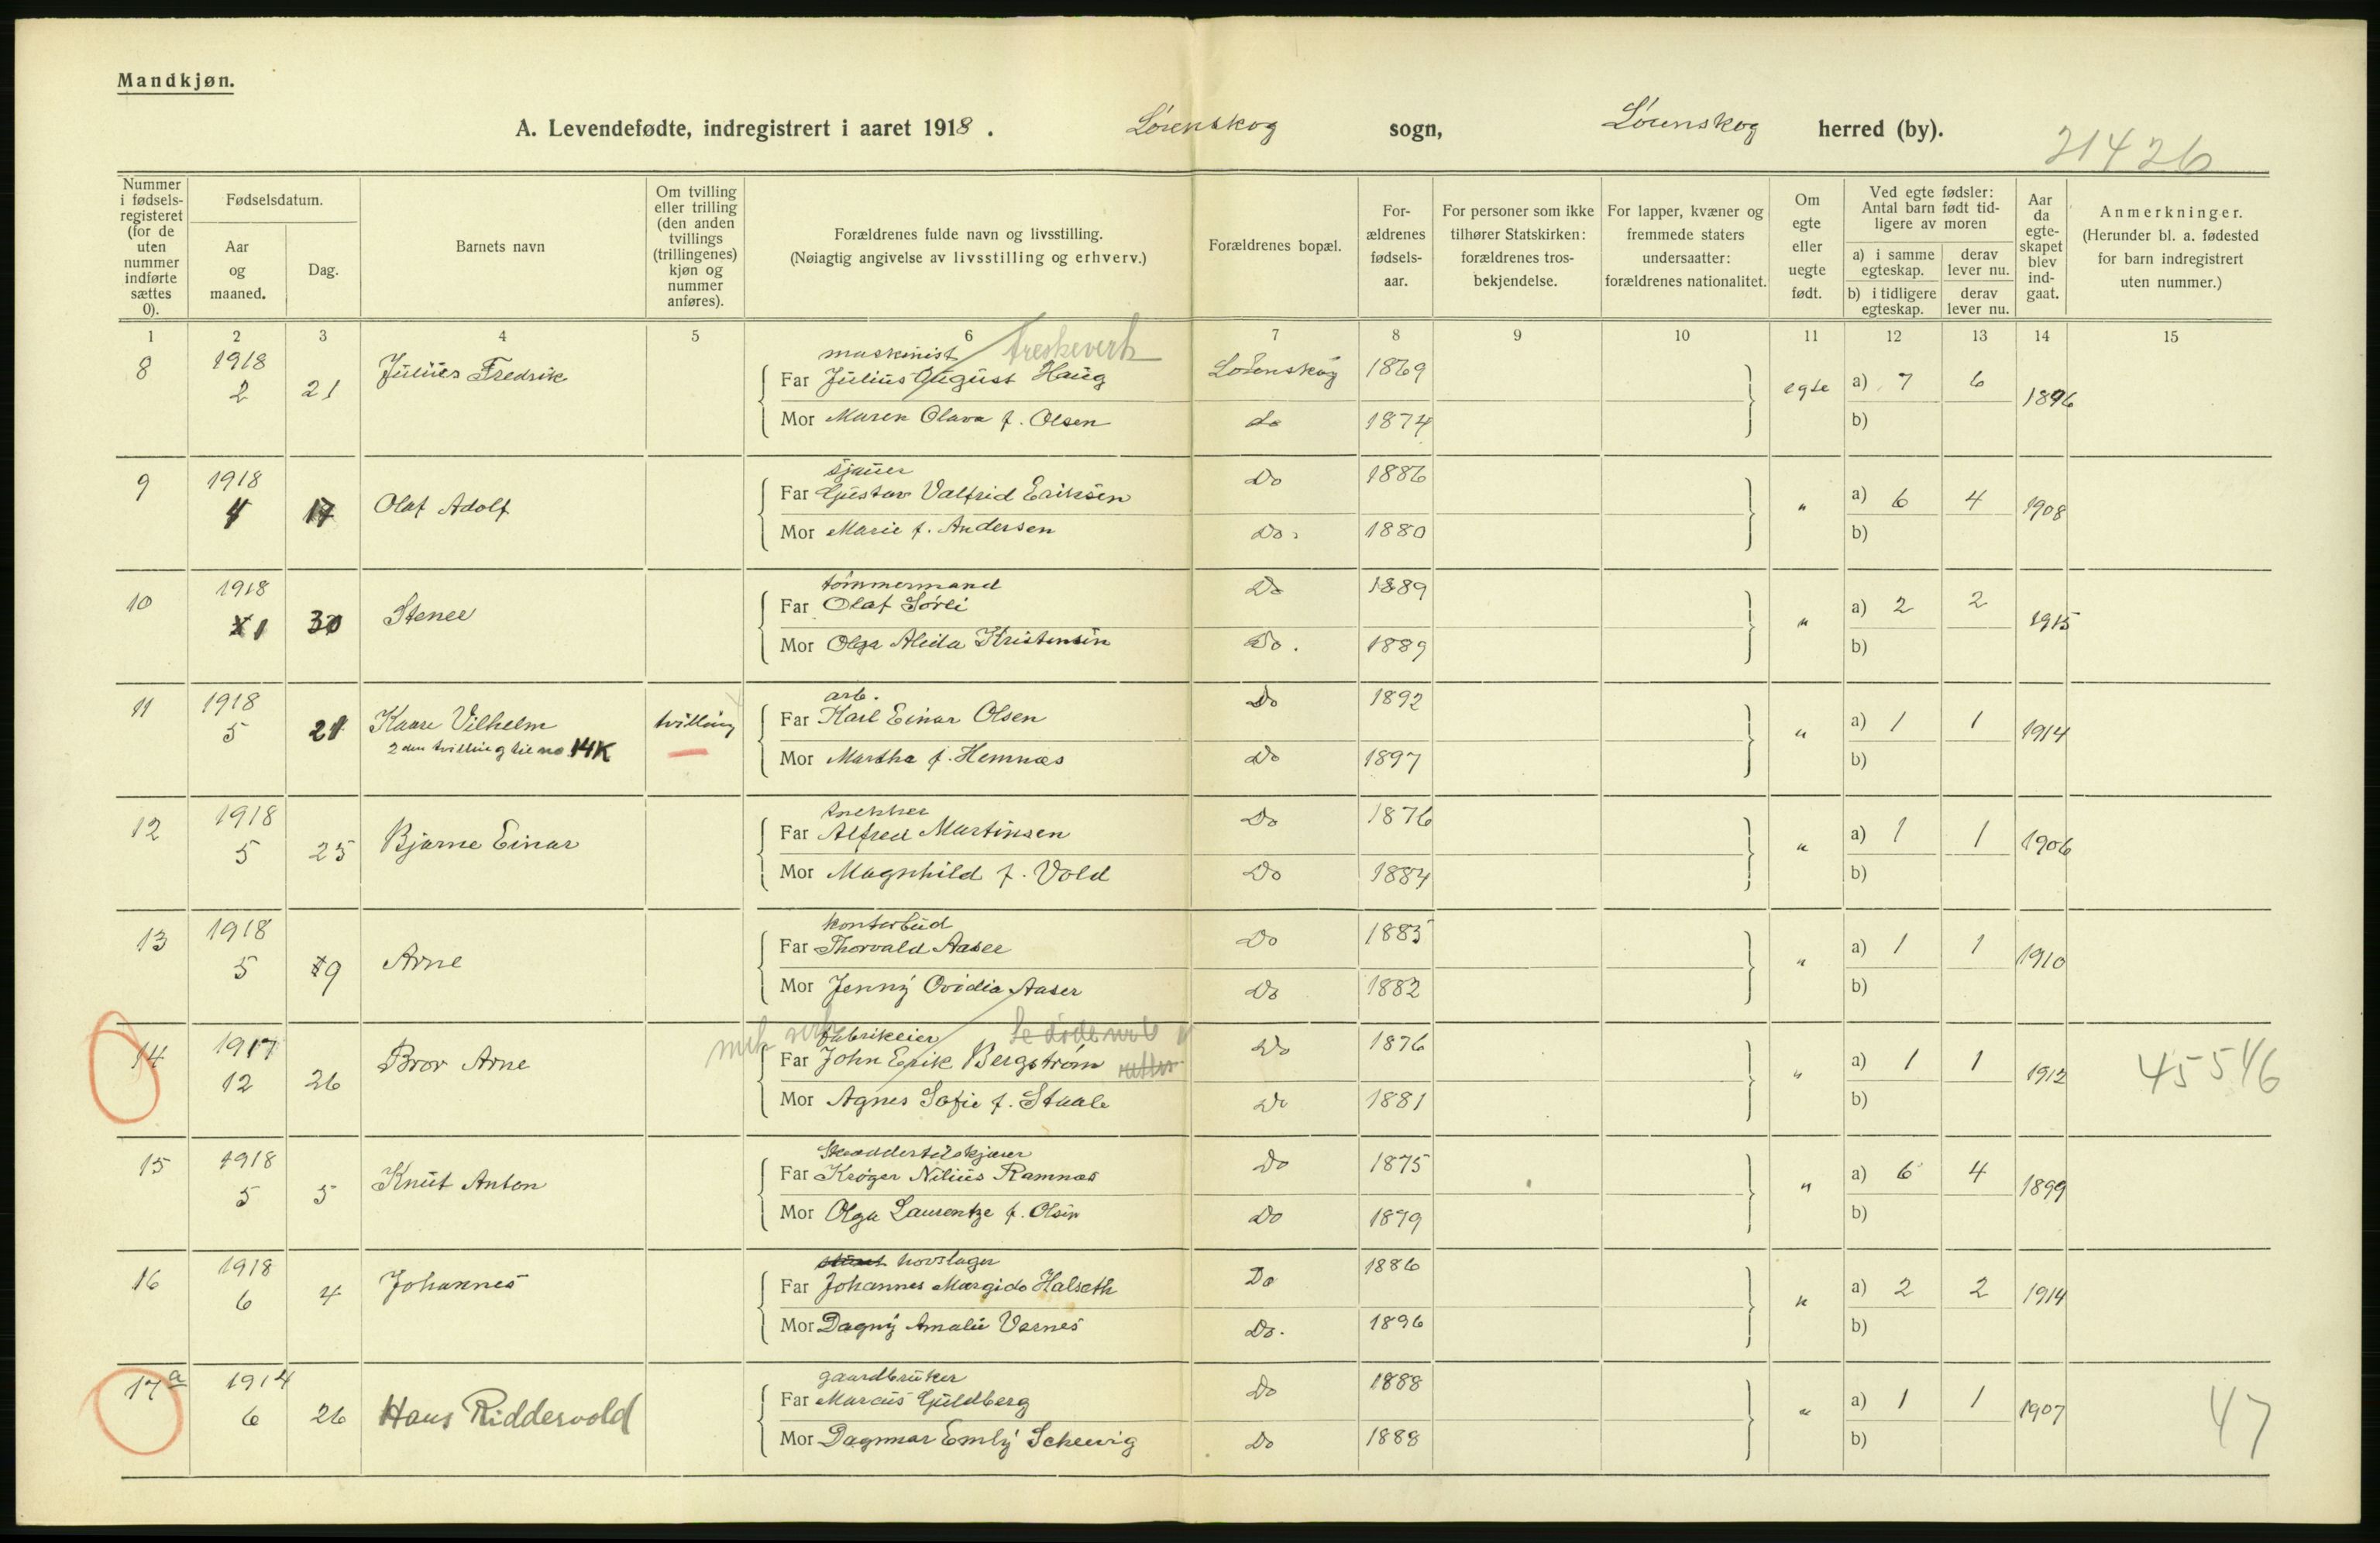 Mandkjøn.
A. Levendefødte, indregistrert i aaret 1918. Lørenskog sogn, Lørenskog herred (by).
21426
Nummer i fødsels-registeret (for de uten nummer indførte sættes 0).
Fødselsdatum.
Aar og maaned.
Dag.
Barnets navn
Om tvilling eller trilling (den anden tvillings (trillingenes) kjøn og nummer anføres).
Forældrenes fulde navn og livsstilling.
(Nøiagtig angivelse av livsstilling og erhverv.)
Forældrenes bopæl.
For-ældrenes fødsels-aar.
For personer som ikke tilhører Statskirken: forældrenes tros-bekjendelse.
For lapper, kvæner og fremmede staters undersaatter: forældrenes nationalitet.
Om egte eller uegte født.
Ved egte fødsler: Antal barn født tid-ligere av moren
a) i samme egteskap. derav lever nu.
b) i tidligere egteskap. derav lever nu.
Aar da egte-skapet blev ind-gaat.
Anmerkninger.
(Herunder bl. a. fødested for barn indregistrert uten nummer.)
1 2 3 4 5 6 7 8 9 10 11 12 13 14 15
maskinist treskeverk
8 1918 2 21 Julius Fredrik Far Julius August Haug Lørenskog 1869 egte a) 7 6 1896
Mor Maren Olava f. Olsen do 1874 b)
sjauer
9 1918 4 17 Olaf Adolf Far Gustav Valfrid Eriksen Do 1886 " a) 6 4 1908
Mor Marie f. Andersen Do. 1880 b)
tømmermand
10 1918 1 30 Stener Far Olaf Sørli Do 1889 " a) 2 2 1915
Mor Olga Alida Kristensen Do. 1889 b)
arb.
11 1918 5 21 Kaare Vilhelm tvilling Far Karl Einar Olsen Do 1892 " a) 1 1 1914
2den tvilling til no 14K Mor Martha f. Hemnæs Do 1897 b)
snekker
12 1918 5 25 Bjarne Einar Far Alfred Martinsen Do 1876 " a) 1 1 1906
Mor Magnhild f. Vold Do 1884 b)
kontorbud
13 1918 5 19 Arne Far Thorvald Aaser Do 1885 " a) 1 1 1910
Mor Jenny Ovidia Aaser Do 1882 b)
mek verk fabrikeier
14 1917 12 26 Bror Arne Far John Erik Bergstrøm Do 1876 " a) 1 1 1912 45546
Mor Agnes Sofie f. Staale Do 1881 b)
Skræddertilskjærer
15 1918 5 5 Knut Anton Far Krøger Nilius Ramnæs Do 1875 " a) 6 4 1899
Mor Olga Laurentze f. Olsen Do 1879 b)
hovslager
16 1918 6 4 Johannes Far Johannes Margido Halseth Do 1886 " a) 2 2 1914
Mor Dagny Amalie Varnes Do. 1896 b)
gaardbruker
17a 1914 6 26 Hans Riddervold Far Marcus Guldberg Do 1888 " a) 1 1 1907 47
Mor Dagmar Emly Schewig Do 1888 b)